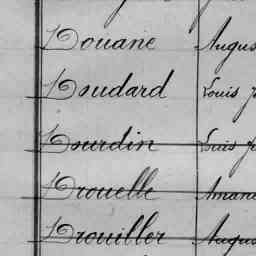 Douane Augus
Doudard Louis J
Dourdin Louis J
Drouelle Amand
Drouiller Augus